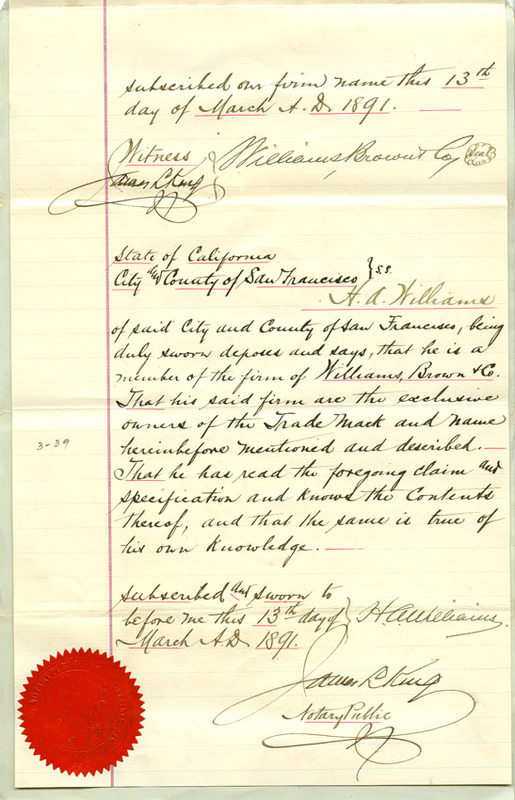 subscribed our firm name this 13th
day of March A.D. 1891.
Witness
Williams, Brown & Co
Seal
James L King
State of California
City and County of San Francisco } S.S.
H. A. Williams
of said City and County of San Francisco, being
duly sworn deposes and says, that he is a
member of the firm of Williams, Brown & Co.
That his said firm are the exclusive
owners of the Trade Mark and name
hereinbefore mentioned and described.
3-39
That he has read the foregoing claim and
specification and knows the Contents
thereof, and that the same is true of
his own knowledge.
subscribed and sworn to
before me this 13th day of
March A.D. 1891.
H. A. Williams.
James L King
Notary Public